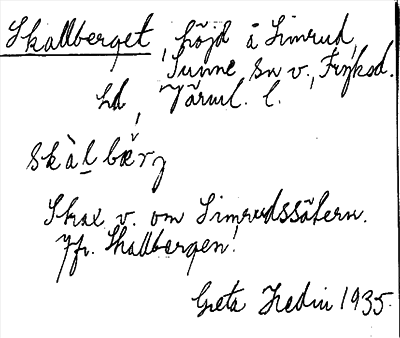 Skallberget, höjd å Simrud,
Sunne sn v., Fryksd.
hd, Värml. l.
skàl̲bærg
Strax v. om Simrudssätern.
Jfr. Skallbergen!
Greta Hedin 1935.